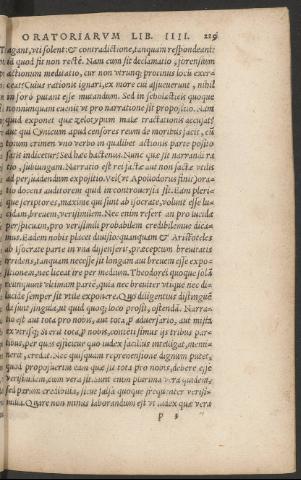 ORATORIARVM LIB. IIII. 225
agant, vti solent: & contradictione, tanquam respondeant:
id quod fit non recte. Nam cum sit declamatio, forensium
actionum meditatio, cur non vtrunq; protinus locũ exer-
ceat? Cuius rationis ignari, ex more cui assueuerunt, nihil
in foro putant esse mutandum. Sed in scholasticis quoque
nonnunquam euenit vt pro narratione sit propositio. Nam
quid exponet que zelotypum malæ tractationis accusat?
aut qui Cynicum apud censores reum de moribus facit, cũ
totum crimen vno verbo in qualibet actionis parte posito
satis indicetur? Sed hæc hactenus. Nunc quæ sit narrandi ra
tio, subiungam. Narratio est rei factæ aut non factæ vtilis
ad persuadendum expositio. Vel (vt Apollodorus finit) ora
tio docens auditorem quid in controuersia sit. Eam pleri-
que scriptores, maxime qui sunt ab Isocrate, volunt esse lu-
cidam, breuem, verisimilem. Nec enim refert an pro lucida
perspicuam, pro verisimili probabilem credibilémue dica-
mus. Eadem nobis placet diuisio: quanquam & Aristoteles
ab Isocrate parte in vna dissenserit, præceptum breuitatis
irridens, tanquam necesse sit longam aut breuem esse expo-
sitionem, nec liceat ire per medium. Theodorei quoque solã
relinquunt vltimam partẽ, quia nec breuiter vtique nec di-
lucide semper sit vtile exponere. Quo diligentius distinguẽ
da sunt singula, vt quid quoq; loco prosit, ostendã. Narra-
tio est aut tota pro nobis, aut tota ꝓ aduersario, aut mista
ex vtrisq;. Si erit tota ꝓ nobis, contẽti simus iis tribus par-
tibus, per quas efficitur quo iudex facilius intelligat, memi-
nerit, credat. Nec quisquam reprensione dignum putet,
quod proposuerim eam quæ sit tota pro nobis, debere esse
verisimilem, cum vera sit. sunt enim plurima vera quidem,
sed parum credibilia, sicut falsa quoque frequenter verisi-
milia. Quare non minus laborandum est vt iudex quæ vera
p